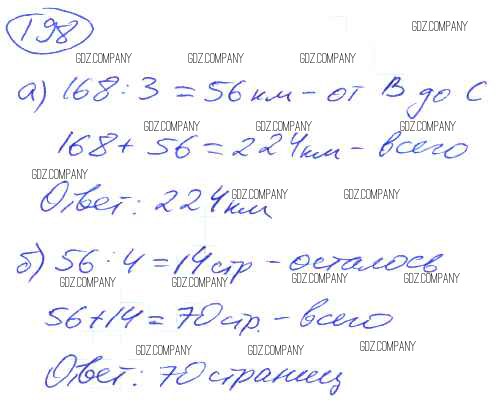 198
GDZ.COMPANY
GDZ.COMPANY GDZ.COMPANY GDZ.COMPANY
а) 168 : 3 = 56 км – от В до С
GDZ.COMPANY GDZ.COMPANY GDZ.COMPANY
168 + 56 = 224 км – всего
GDZ.COMPANY
Ответ: 224 км
GDZ.COMPANY GDZ.COMPANY
б) 56 : 4 = 14 стр – осталось
GDZ.COMPANY GDZ.COMPANY GDZ.COMPANY GDZ.COMPANY
56 + 14 = 70 стр. – всего
GDZ.COMPANY GDZ.COMPANY GDZ.COMPANY
Ответ: 70 страниц